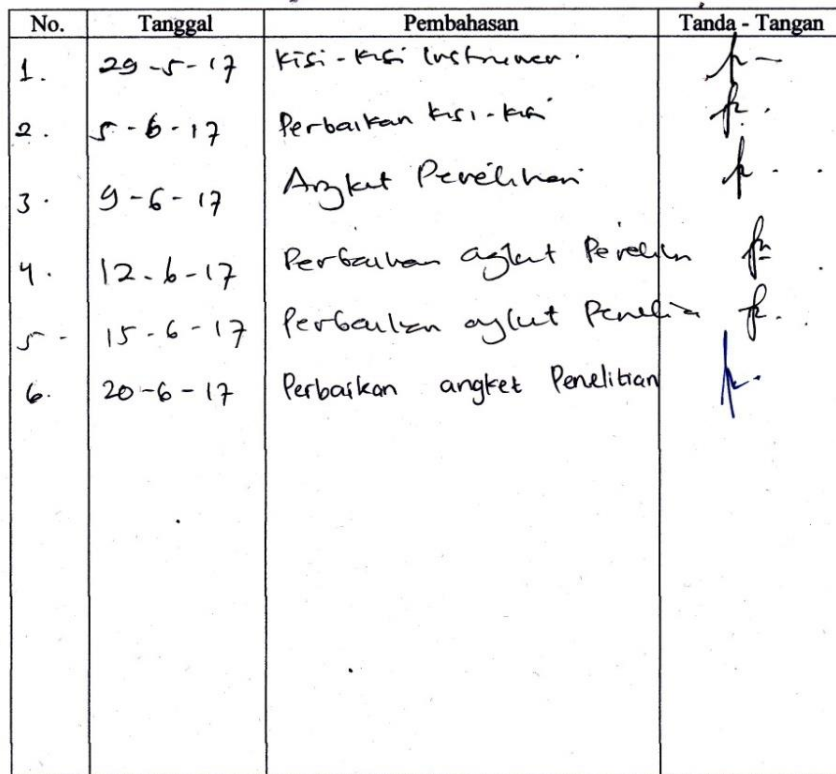 No. Tanggal Pembahasan Tanda - Tangan
1. 29-5-17 Kisi-kisi Instrumen.
2. 5-6-17 Perbaikan kisi-kisi
3. 9-6-17 Angket Penelitian
4. 12-6-17 Perbaikan angket Penelitian
5- 15-6-17 Perbaikan angket Penelitian
6. 20-6-17 Perbaikan angket Penelitian